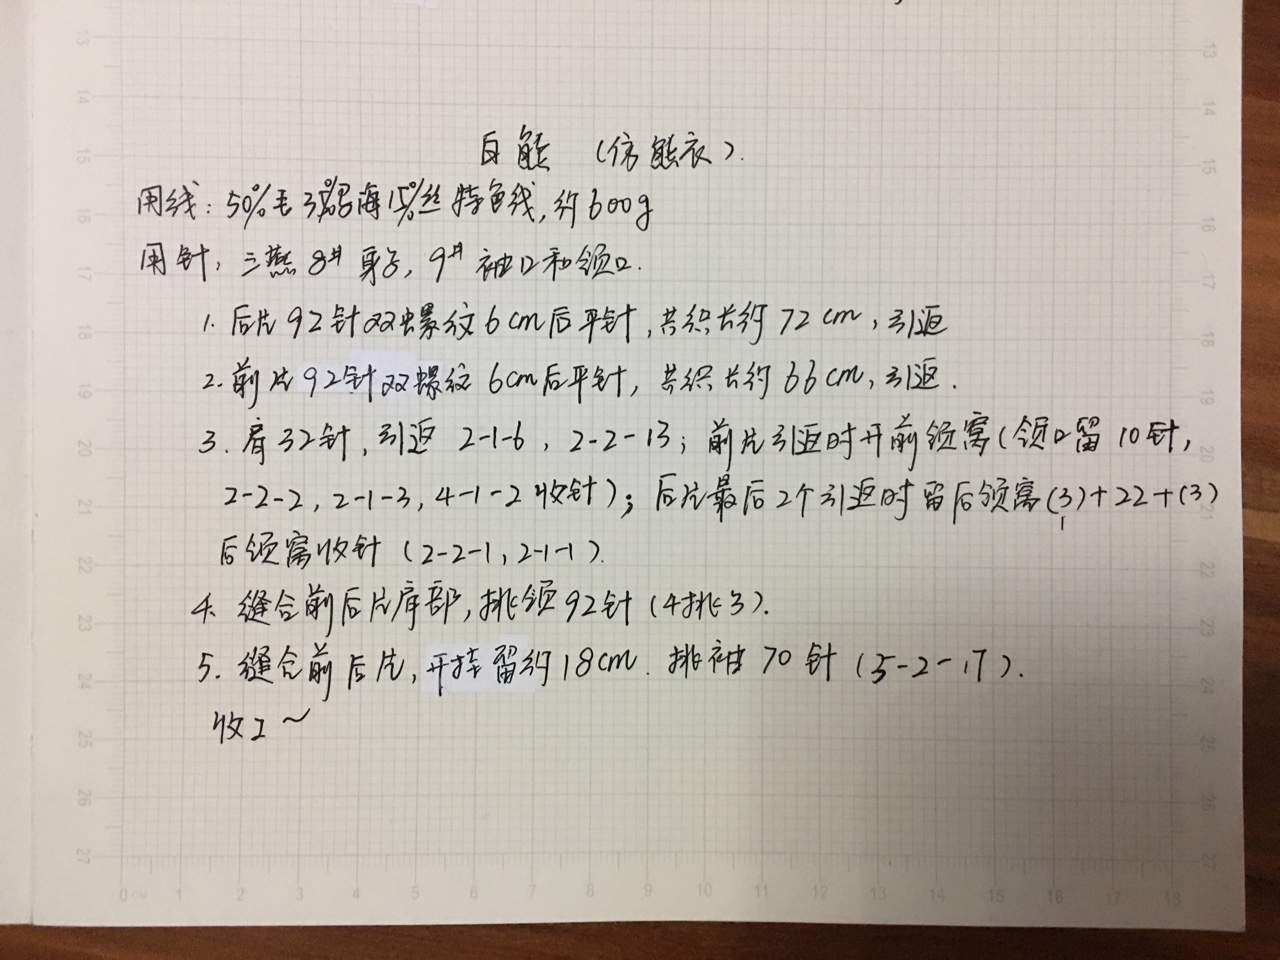 白熊 （仿熊衣）.
用线：50%毛35%马海15%丝特色线，约600g
用针，三燕8# 身子，9# 袖口和领口.
1. 后片92针双螺纹6cm后平针，共织长约72cm，引返
2. 前片92针双螺纹6cm后平针，共织长约66cm，引返.
3. 肩32针，引返 2-1-6，2-2-13；前片引返时开前领窝（领口留10针，
2-2-2，2-1-3，4-1-2收针）；后片最后2个引返时留后领窝(3)+22+(3)
后领窝收针（2-2-1，2-1-1）.
4. 缝合前后片肩部，挑领92针（4挑3）.
5. 缝合前后片，开挂留约18cm. 挑袖70针（5-2-17）.
收工～
13
14
15
16
17
18
19
20
21
22
23
24
25
26
27
13
14
15
16
17
18
19
20
21
22
23
24
25
26
27
0CM 1 2 3 4 5 6 7 8 9 10 11 12 13 14 15 16 17 18